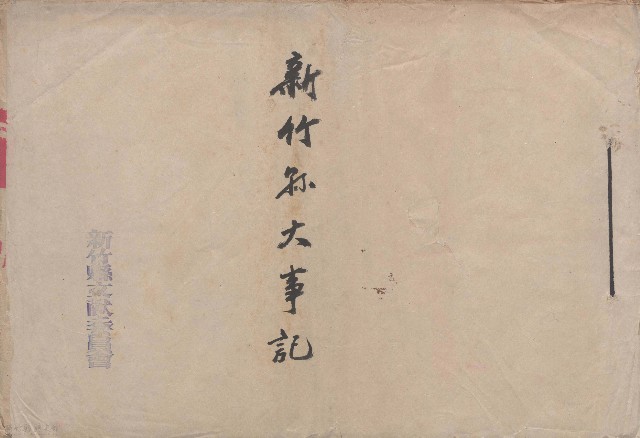 新竹縣大事記
新竹縣文獻委員會